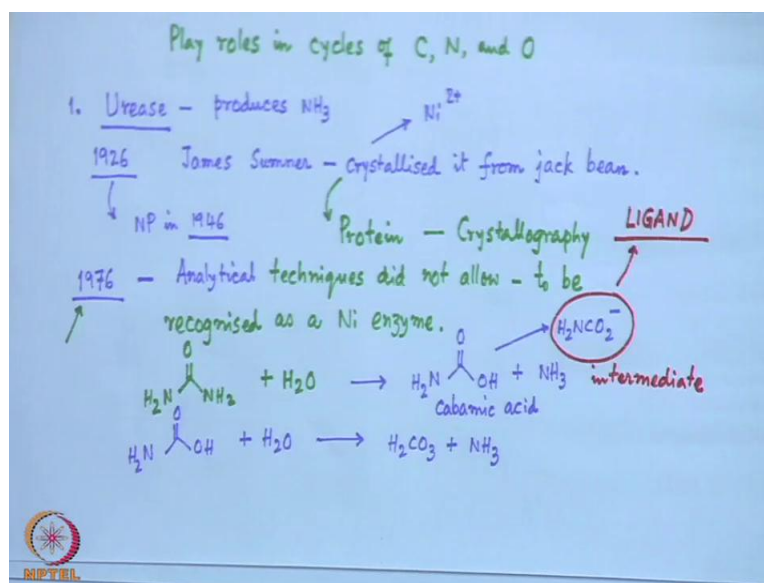 Play roles in cycles of C, N, and O
1. Urease - produces NH3 Ni2+
1926 James Sumner - crystallised it from jack bean.
NP in 1946
Protein - Crystallography LIGAND
1976 - Analytical techniques did not allow - to be
recognised as a Ni enzyme.
H2NCO2-
O O
H2N NH2 + H2O → H2N OH + NH3 intermediate
Cabamic acid
O
H2N OH + H2O → H2CO3 + NH3
NPTEL